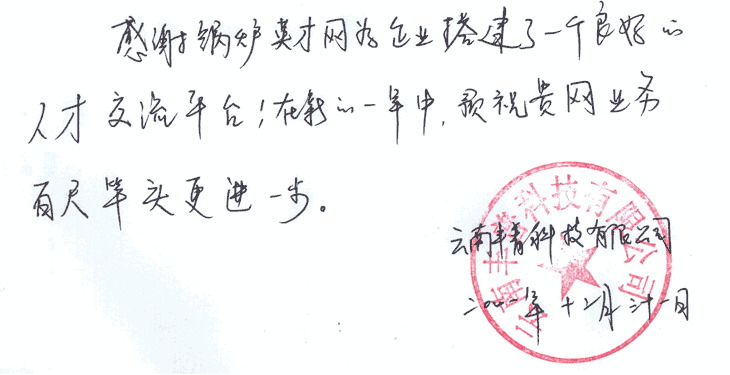 感谢锅炉英才网为企业搭建了一个良好的
人才交流平台!在新的一年中,预祝贵网业务
百尺竿头更进一步。
云南丰科技有限公司
年十二月三十一日
云南丰科技有限公司